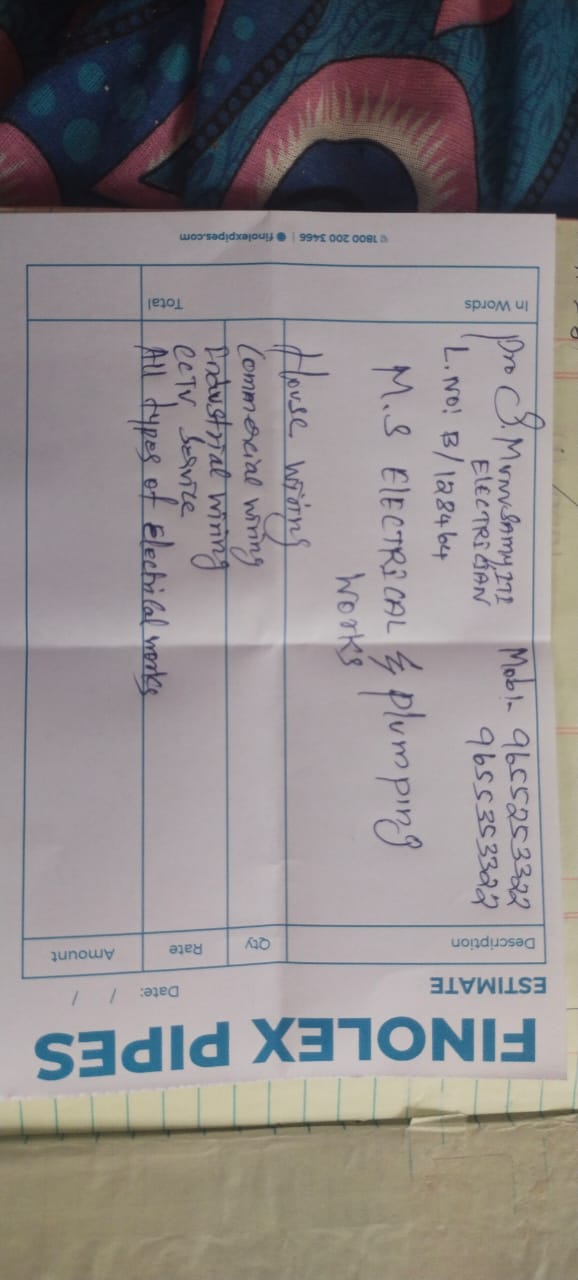 FINOLEX PIPES
ESTIMATE
Date: / /
Description Qty Rate Amount
Pro S. MUNUSAMY ITI Mob:- 9655253322
ELECTRICIAN 9655353322
L.NO: B/128464
M.S ELECTRICAL & plumping
works
House wiring
Commercial wiring
Industrial wiring
CCTV Service
All types of Electrical works
In Words Total
1800 200 3466 | finolexpipes.com